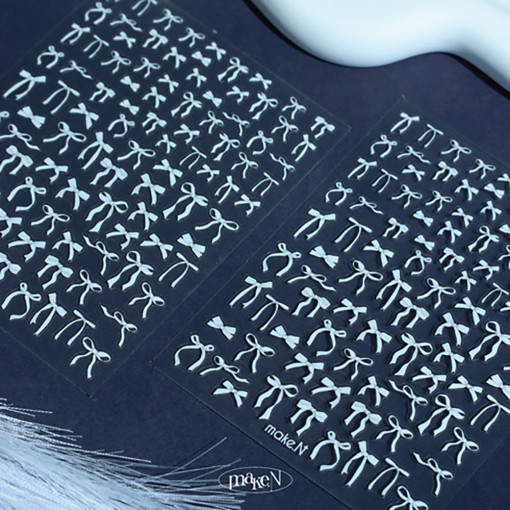 make.N
make N